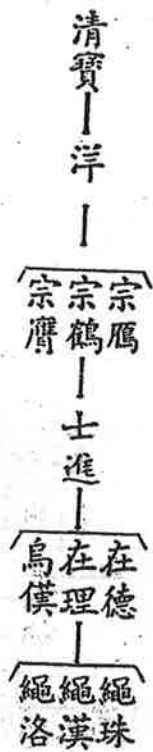 清寶
洋
宗鴈
宗鶴
宗
士進
在德
在理
烏
繩珠
繩漢
繩洛